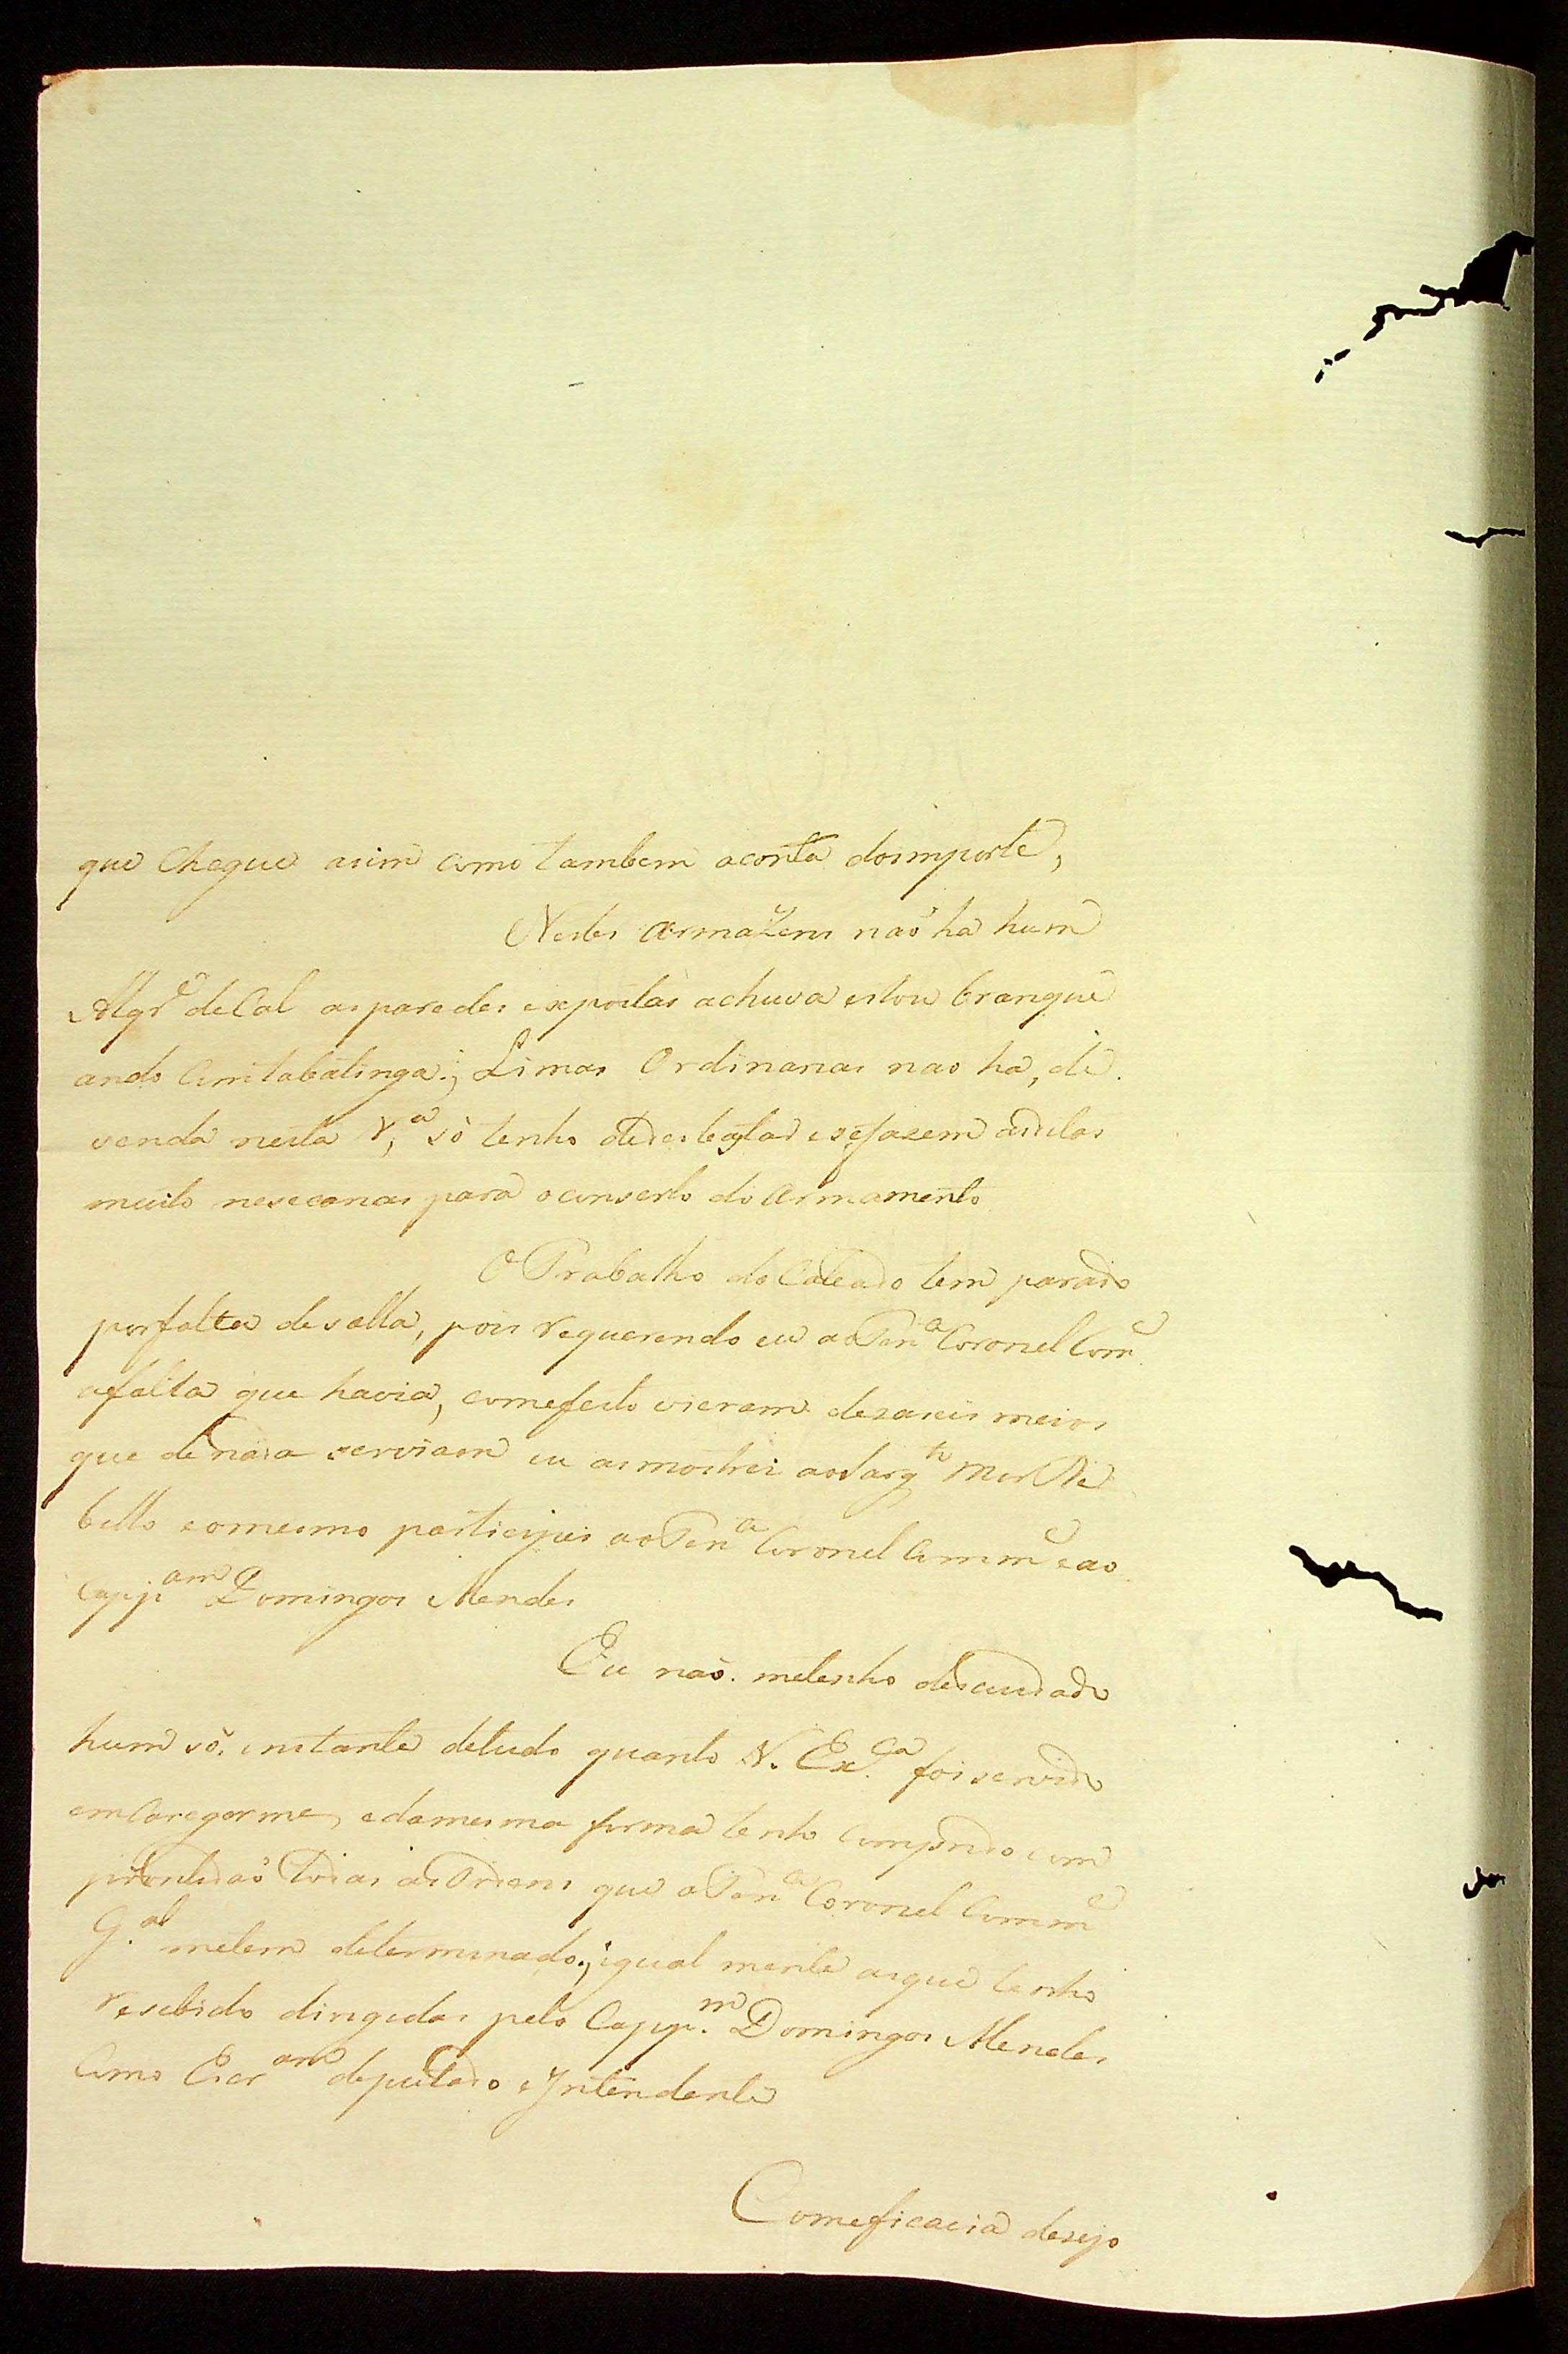 que Chegue asim como tambem aconta dosimporte,
Nestes armazens naõ ha hum
Alqr.e deCal asparedes expostas achuva estou branque
ando Comtabatinga; Limas Ordinarias nao ha, de
venda nesta V.a sò tenho e sefazem
muito nesecarias para oconserto do armamento
O Trabalho do Calcado tem parado
porfalta desolla, pois requerendo eu aoTen.e Coronel Com.e
afalta que havia, comefeito vieram dezaseis meios
que denada serviam eu asmostrei aoSarg.to Mor Re
bello eomesmo participei aoTen.e Coronel Comm.e eao
Capp.am Domingos Mendes
Eu naõ metenho descuidado
hum sò instante detudo quanto V. Ex.ca foi servido
emCaregarme, edamesma forma tenho Comprido com
prontidaõ todas asOrdens que oTen.e Coronel Comm.e
G.al metem determinado; igual mente asque tenho
resebido dirigidas pelo Capp.m Domingos Mendes
Como Escr.am deputado e Intendente
Comeficacia desejo